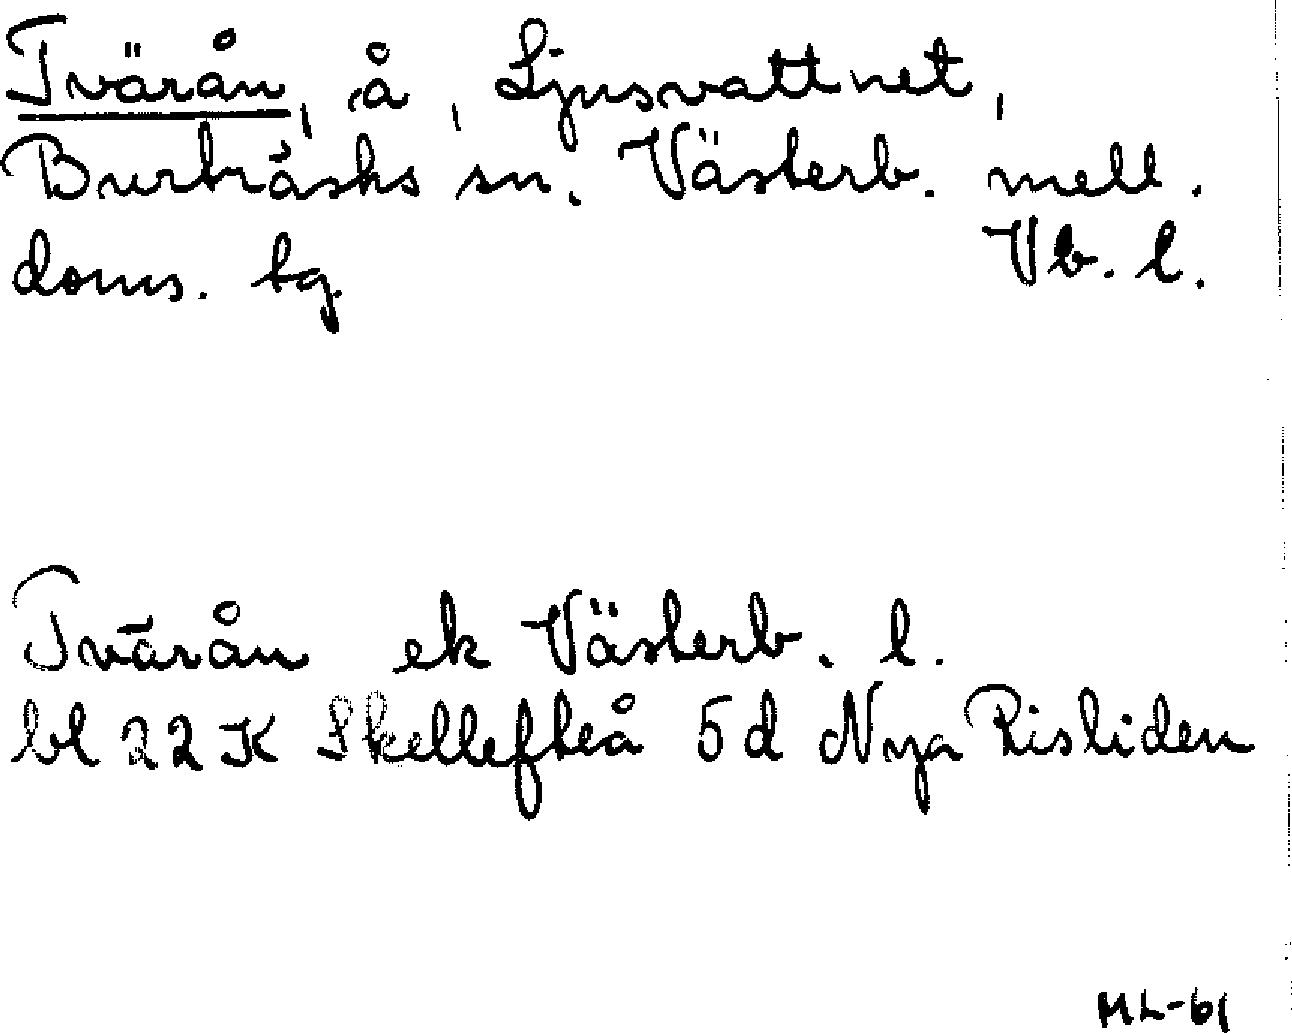 Tvärån, å, Ljusvattnet,
Burträsks sn. Västerb. mell.
doms. tg. Vb. l.
Tvärån ek Västerb. l.
bl 22 K Skellefteå 5 d Nya Risliden
ML-61